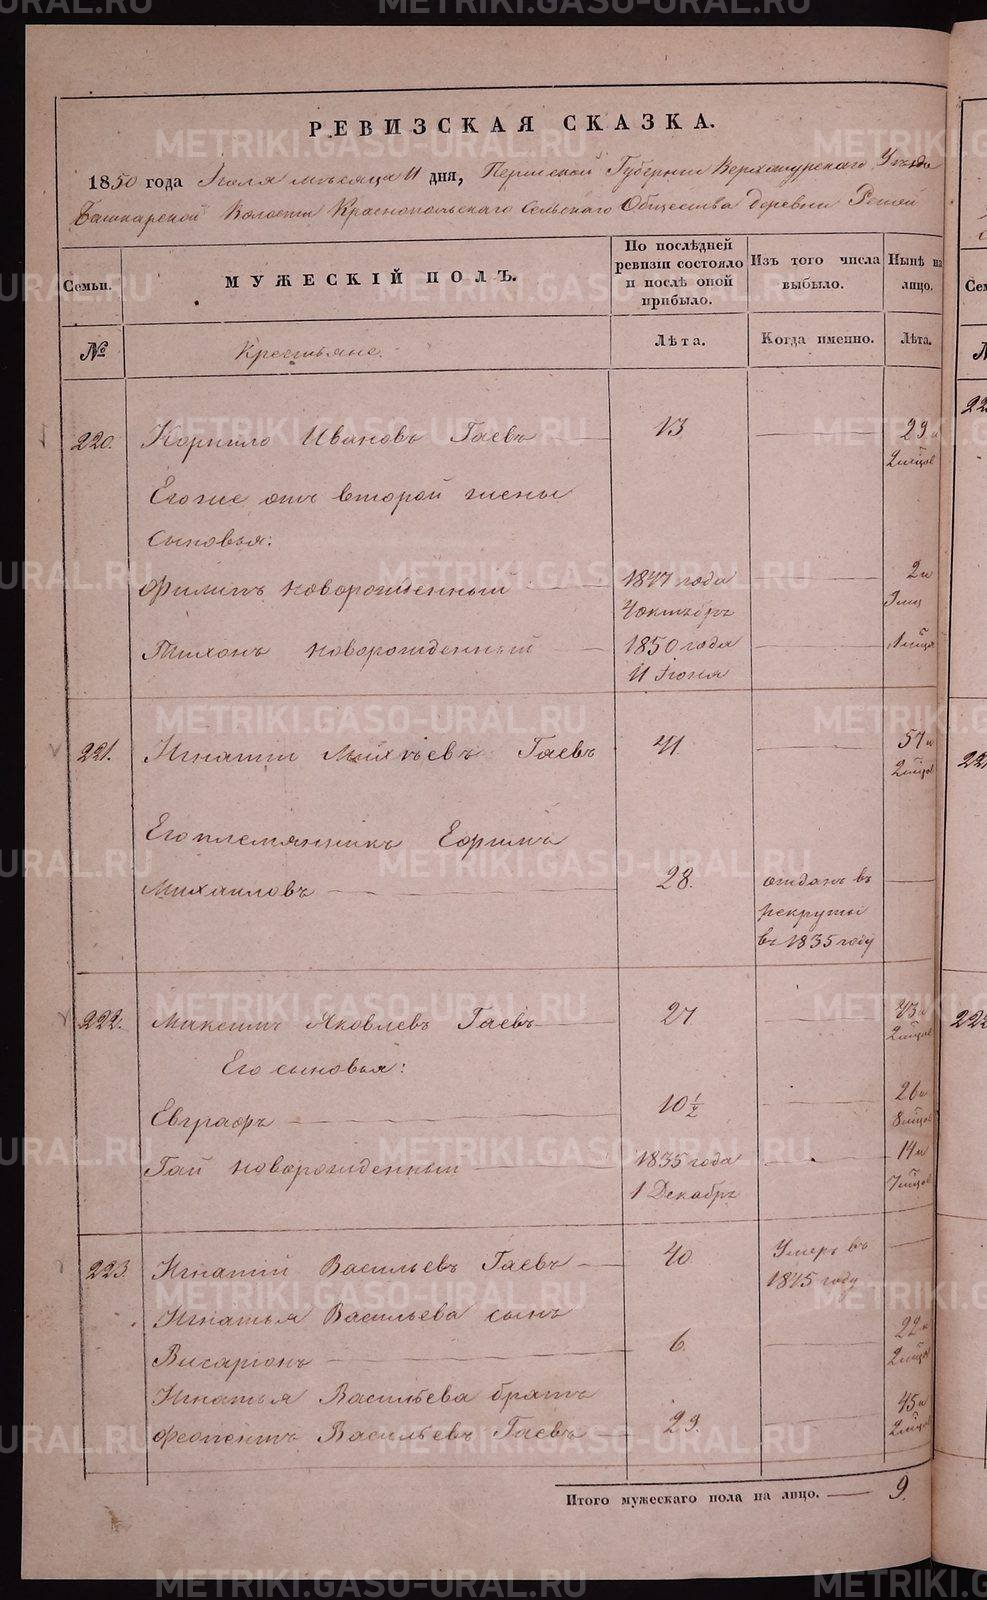 РЕВИЗСКАЯ СКАЗКА.
1850 года Июля месяца 11 дня, Пермской Губернии Верхотурского Уезда
Башкарской Волости Краснопольского Сельского Общества деревни Решей
Семьи.
МУЖЕСКІЙ ПОЛЪ.
По послѣдней ревизіи состояло и послѣ оной прибыло.
Изъ того числа выбыло.
Нынѣ на лицо.
№
Крестьяне.
Лѣта.
Когда именно.
Лѣта.
220. Корнило Ивановъ Гаевъ 13 29 и
2 м҃цов
Его же отъ второй жены
Сыновья:
Филипъ новорожденный 1847 года 2 и
4 октябр
Тихонъ новорожденный 1850 года 1 м҃ца
11 Іюня
221. Игнатій Михѣевъ Гаевъ 41 57 и
2 м҃цов
Его племянникъ Ефимъ
Михаиловъ 28. отданъ въ
рекруты
въ 1835 году
222. Максимъ Яковлевъ Гаевъ 27 43 и
2 м҃цов
Его сыновья:
Евграфъ 10 ½ 26 и
8 м҃цов
Гай новорожденный 1835 года 14 и
1 Декабр 7 м҃цов
223. Игнатій Васильевъ Гаевъ 40 Умеръ въ
1845 году
Игнатья Васильева сынъ
Висаріонъ 6. 22 и
2 м҃цов
Игнатья Васильева братъ
Феопентъ Васильевъ Гаевъ 29. 45 и
2 м҃цов
Итого мужескаго пола на лицо. 9.
METRIKI.GASO-URAL.RU